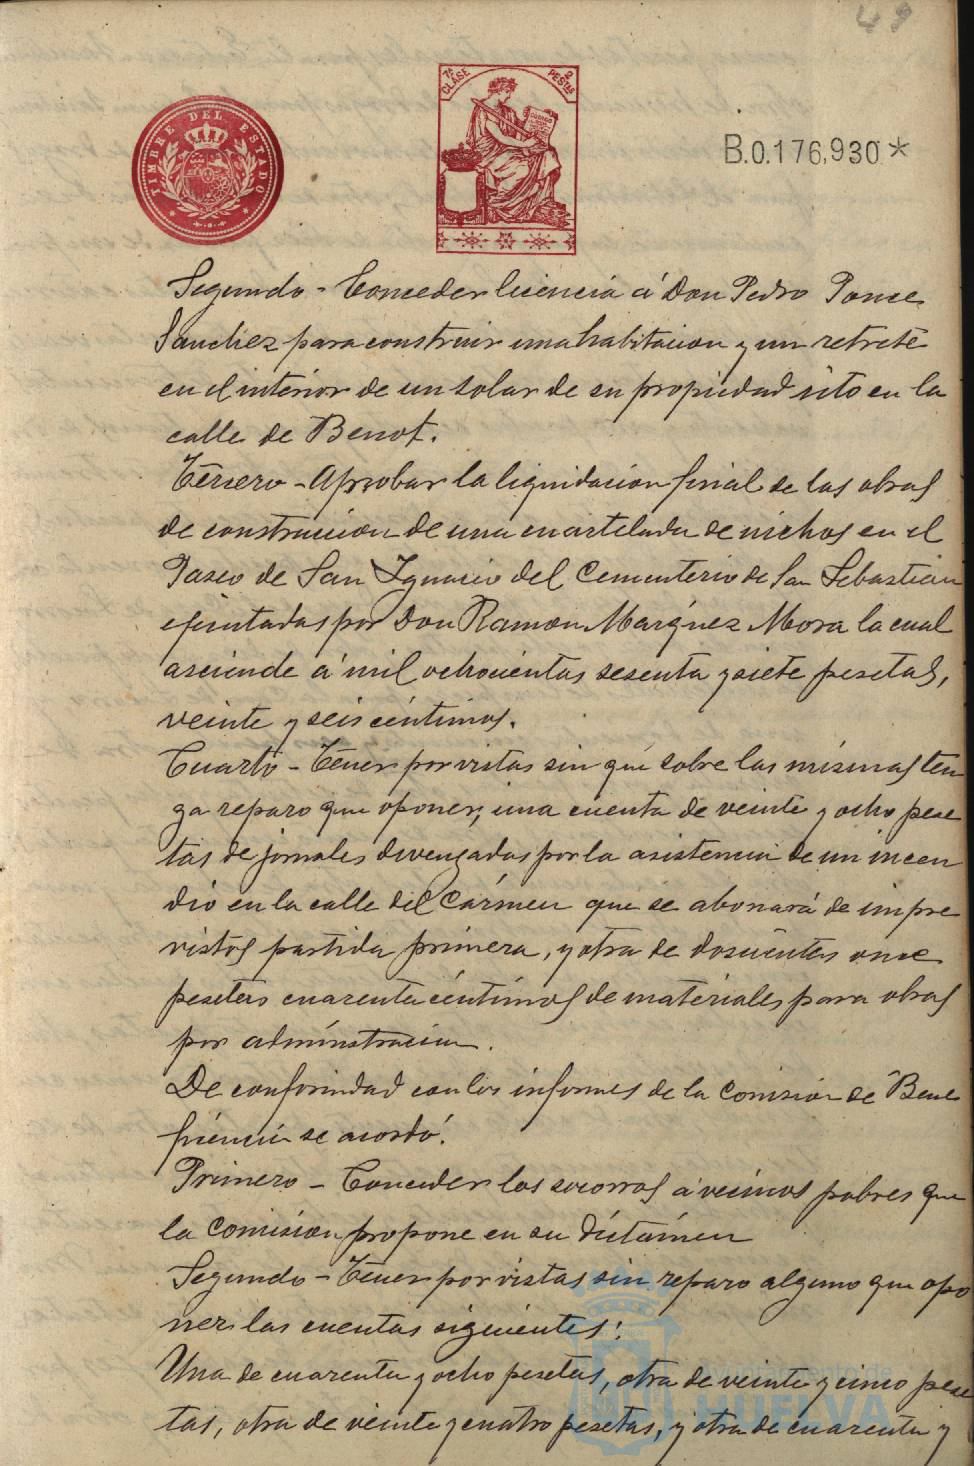 49
TIMBRE DEL ESTADO
7ª CLASE
2 PESTAS
B.0.176,930*
Segundo - Conceder licencia á Don Pedro Ponce
Sanchez para construir una habitacion y un retrete
en el interior de un solar de su propiedad sito en la
calle de Benot.
Tercero - Aprobar la liquidacion final de las obras
de construccion de una cuartelada de nichos en el
Paseo de San Ignacio del Cementerio de San Sebastian
ejecutadas por Don Ramon Marquez Mora la cual
asciende á mil ochocientas sesenta y siete pesetas,
veinte y seis céntimos.
Cuarto - Tener por vistas sin que sobre las mismas ten
ga reparo que oponer, una cuenta de veinte y ocho pese
tas de jornales devengadas por la asistencia de un incen
dio en la calle del Cármen que se abonará de impre
vistos partida primera, y otra de doscientas once
pesetas cuarenta céntimos de materiales para obras
por administracion.
De conformidad con los informes de la Comision de Bene
ficencia se acordó.
Primero - Conceder los socorros á vecinos pobres que
la Comision propone en su dictámen
Segundo - Tener por vistas sin reparo alguno que opo
ner las cuentas siguientes:
Una de cuarenta y ocho pesetas, otra de veinte y cinco pese
tas, otra de veinte y cuatro pesetas, y otra de cuarenta y
Ayuntamiento de
HUELVA